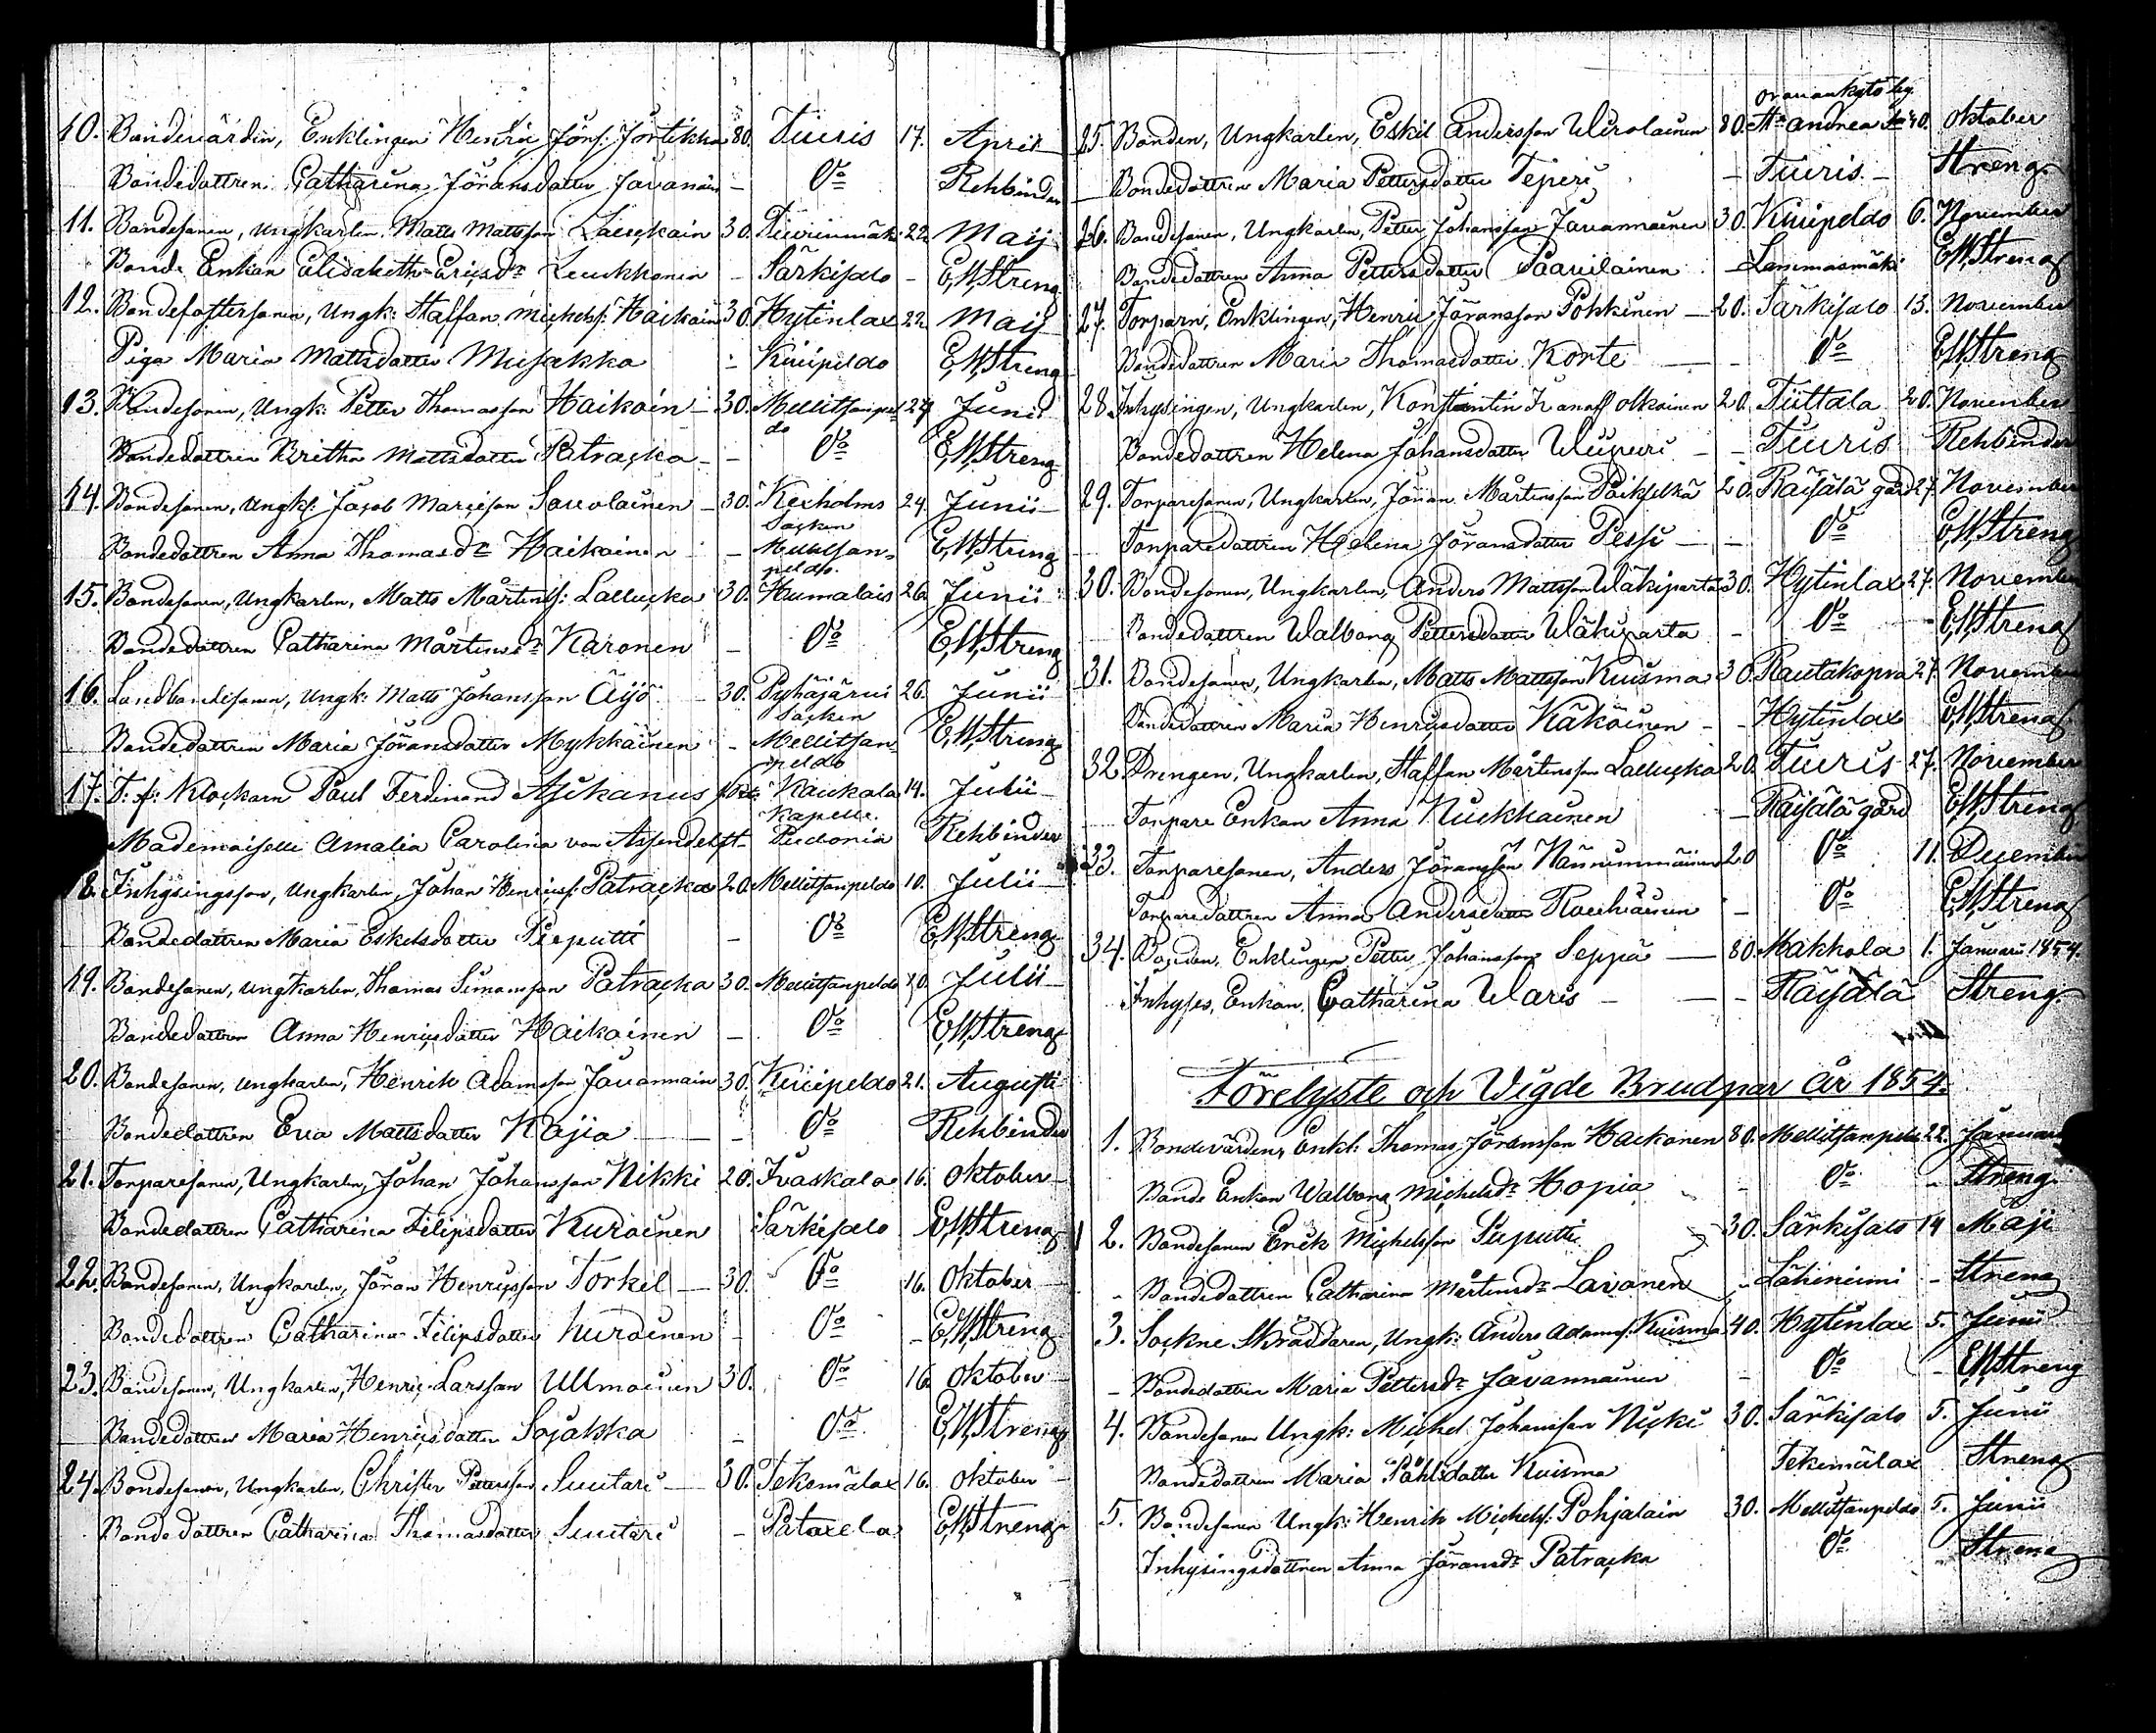 10. Bondevärden, Enklingen Henric Jöns: Jortikka 80. Tiuris 17. April
Bondedottren Catharina Jöransdotter Javanain – Do Rehbinder
11. Bondesonen, Ungkarlen Matts Mattsson Lauckain 30. 22. Maij
Bonde Enkan Elisabeth Ericsdr Leukkonen – Särkisalo – E,W,Streng
12. Bondefostersonen, Ungk: Staffan Michelss: Haikain 30. Hytinlax 22. Maij
Piga Maria Mattsdotter Musakka – Kiiripeldo E,W,Streng
13. Bondesonen, Ungk: Petter Thomasson Haikain – 30. Mellitsanpel 24 Junii
do
Bondedottren Britha Mattsdotter Patracka – – Do E,W,Streng
14. Bondesonen, Ungk: Jacob Marcisson Savolainen – 30. Kexholms 24. Junii
Socken
Bondedottren Anna Thomasdr Haikainen – Mellitsan- E,W,Streng
peldo.
15. Bondesonen, Ungkarlen, Matts Mårtenss: Lallucka 30. Humalais 26 Junii
Bondedottren Catharina Mårtensdr Karonen – Do E,W,Streng
16. Landbondesonen, Ungk: Matts Johansson Äijö 30. Pyhäjärvi 26. Junii
Socken
Bondedottren Maria Jöransdotter Mykkäinen – Mellitsan- E,W,Streng
peldo
17. T: f: Klockarn Paul Ferdinand Kaukola 14. Julii
Kapell.
Mademoiselle Amalia Carolina von Assendelft – Rehbinder
18. Inhysingsson, Ungkarlen, Johan Henricss: Patracka 20. Mellitsanpeldo 10. Julii
Bondedottren Maria Eskelsdotter Pieputti – Do E,W,Streng
19. Bondesonen, Ungkarlen, Thomas Simonsson Patracka 30. Mellitsanpeldo 10. Julii
Bondedottren Anna Henricsdotter Haikainen – Do E,W,Streng
20. Bondesonen, Ungkarlen, Henrik Adamsson Javannain 30. Kiiripeldo 21. Augusti
Bondedottren Eva Mattsdotter Kojia – Do Rehbinder
21. Torparesonen, Ungkarlen, Johan Johansson Nikki 20. Ivaskala 16. Oktober
Bondedottren Catharina Filipsdotter Kurainen Särkisalo E,W,Streng
22. Bondesonen, Ungkarlen, Jöran Henricsson Torkel – 30. Do 16. Oktober
Bondedottren Catharina Filipsdotter Kurainen – Do – E,W,Streng
23. Bondesonen, Ungkarlen, Henric Larsson Ullmainen 30. Do 16. Oktober
Bondedottren Maria Henricsdotter Sojakka – Do E,W,Streng
24. Bondesonen, Ungkarlen, Christer Pettersson Suutari – 30. Teksmälax 16. Oktober
Bondedottren Catharina Thomasdotter Suutari – Pataxela E,W,Streng
25. Bonden, Ungkarlen, Eskil Andersson Wirolainen 80. St Andreæ 40. Oktober
Bondedottren Maria Pettersdotter Teperi – Tiuris. – Streng
26. Bondesonen, Ungkarlen, Petter Johansson Javannainen 30. Kiiripeldo 6. November
Bondedottren Anna Pettersdotter Paavilainen – Lammasmäki E,W,Streng
27. Torparn, Enklingen, Henric Jöransson Pohkinen – 20. Särkisalo 13. November
Bondedottren Maria Thomasdotter Korte – – Do E,W,Streng
28. Inhysingen, Ungkarlen, Konstantin 20. Tiittala 20. November
Bondedottren Helena Johansdotter Wiipuri – – Tiuris Rehbinder
29. Torparesonen, Ungkarlen, Jöran Mårtensson Poikselkä 20. Räisälä gård 27. November
Torparedottren Helena Jöransdotter Pessi – – Do E,W,Streng
30. Bondesonen, Ungkarlen, Anders Mattsson Wäkiparta 30. Hytinlax 27. November
Bondedottren Walborg Pettersdotter Wäkiparta – Do E,W,Streng
31. Bondesonen, Ungkarlen, Matts Mattsson Kuisma 30. Rautakopra 27. November
Bondedottren Maria Henricsdotter Käköinen – – Hytinlax E,W,Streng
32. Drengen, Ungkarlen, Staffan Mårtensson Lallucka 20. Tiuris 27. November
Torpare Enkan Anna Kuckkainen – Räisälä gård E,W,Streng
33. Torparesonen, Anders Jöransson 20 Do 11. December
Torparedottren Anna Andersdotter Rouhiainen – Do E,W,Streng
34. Bonden, Enklingen Petter Johansson Seppä – 80. Makkola 1. Januari 1854.
Inhyses, Enkan, Catharina Waris – – – Räisälä Streng
Förelyste och Wigde Brudpar År 1854.
1. Bondevärden, Enkl: Thomas Jöransson Haikonen 80. Mellitsanpeldo 22. Januari
Bonde Enkan Walborg Michelsdr Hopia – Do – Streng
2. Bondesonen Erik Michelsson Pieputti 30. Särkisalo 14 Maji
– Bondedottren Catharina Mårtensdr Lavonen – Löhiniemi – Streng
3. Sockne Skräddaren, Ungk: Anders Adamss. Kuisma 40. Hytinlax 5. Junii
– Bondedottren Maria Pettersdr Javannainen – Do – E,W,Streng
4. Bondesonen Ungk: Michel Johansson Nicki 30. Särkisalo 5. Junii
Bondedottren Maria Påhlsdotter Kuisma Teksmälax Streng
5. Bondesonen Ungk: Henrik Michelss: Pohjalain 30. Mellitsanpeldo 5. Junii
Inhysingsdottren Anna Jöransdr Patracka Do – Streng